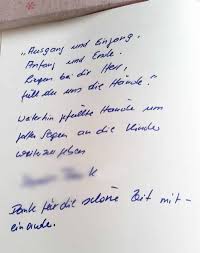 „Ausgang und Eingang,
Anfang und Ende.
Liegen bei dir Herr,
füll du uns die Hände."
Weiterhin gefüllte Hände um
Segen an die Kinder
weiterzugeben
Danke für die schöne Zeit mit-
einander.